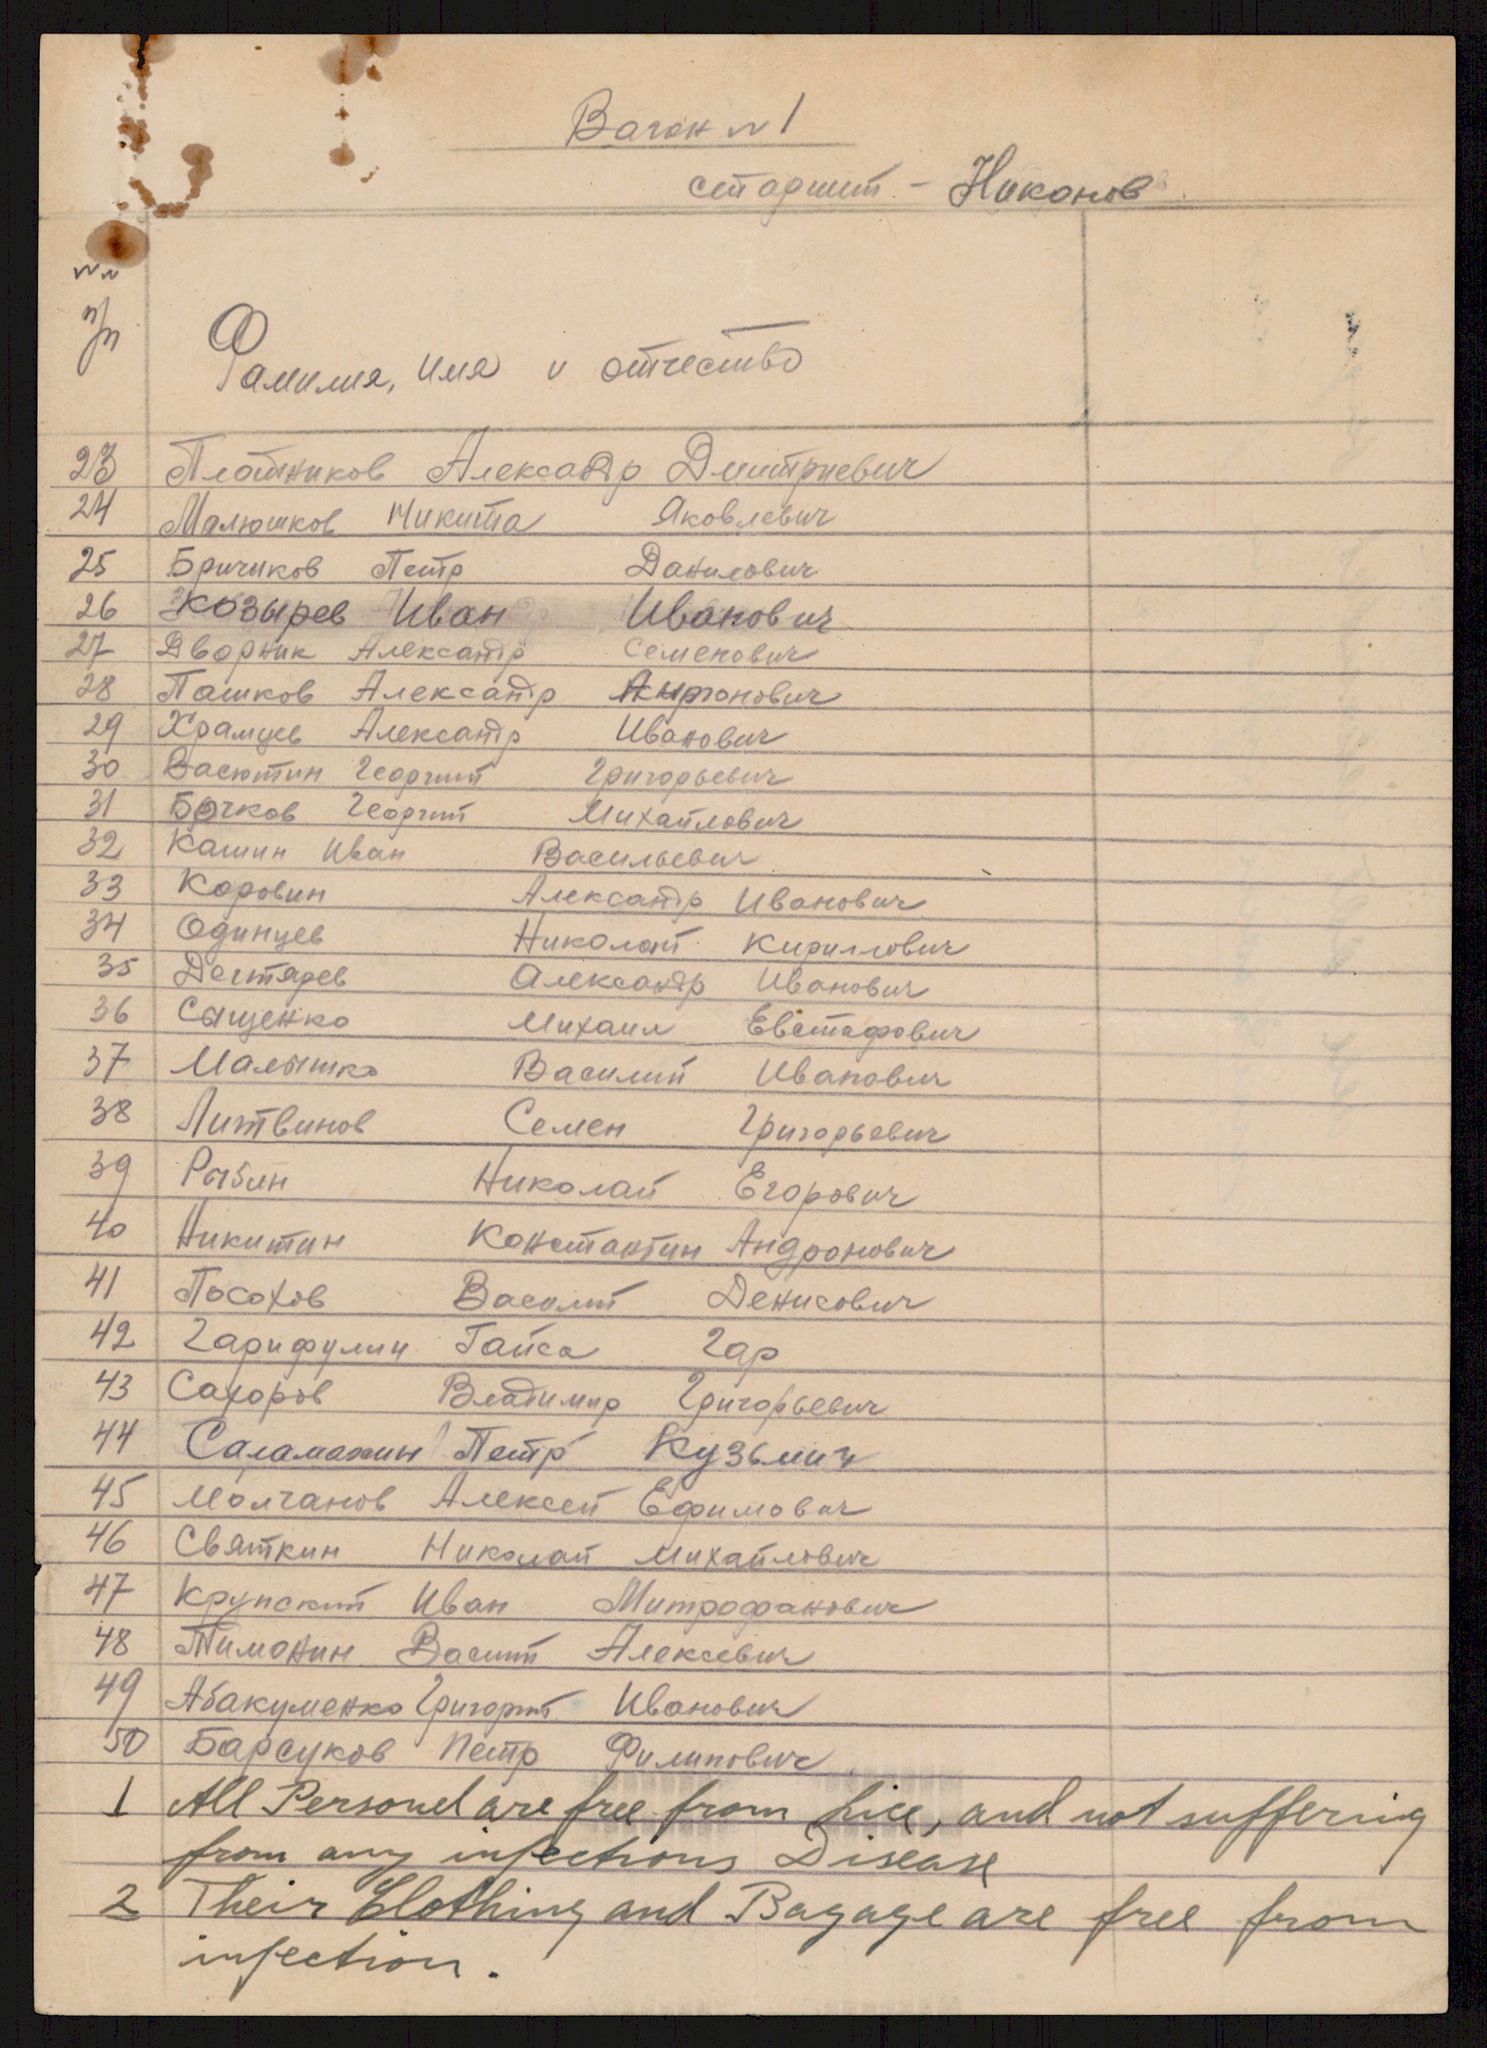 Вагон № 1
старший - Никонов
№№
п/п
Фамилия, имя и отчество
23 Плотников Александр Дмитриевич
24 Малюшков Никита Яковлевич
25 Бричиков Петр Данилович
26 Козырев Иван Иванович
27 Дворник Александр Семенович
28 Пашков Александр
29 Храмцев Александр Иванович
30 Васютин Георгий Григорьевич
31 Бочков Георгий Михайлович
32 Кашин Иван Васильевич
33 Коровин Александр Иванович
34 Одинцев Николай Кириллович
35 Дегтярев Александр Иванович
36 Сыценко Михаил Евстафович
37 Малышко Василий Иванович
38 Литвинов Семен Григорьевич
39 Рыбин Николай Егорович
40 Никитин Константин Андронович
41 Посохов Василий Денисович
42 Гарифулин Гайса Гар
43 Сахоров Владимир Григорьевич
44 Саламахин Петр Кузьмич
45 Молчанов Алексей Ефимович
46 Святкин Николай Михайлович
47 Крупский Иван Митрофанович
48 Тимонин Васий Алексевич
49 Абакуменко Григорий Иванович
50 Барсуков Петр Филипович
1 All Personel are free from Lice, and not suffering
from any infections Disease
2 Their Clothing and Bagage are free from
infection.